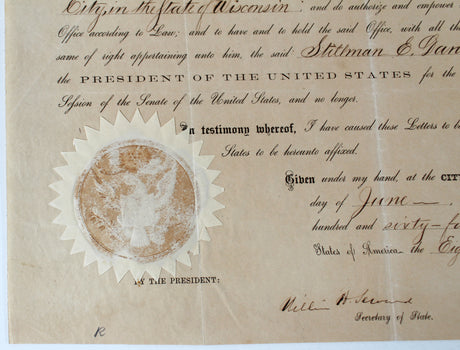 City, in the State of Wisconsin: and do authorize and empower
Office according to Law; and to have and to hold the said Office, with all th
same of right appertaining unto him, the said Stillman E. Dan
the PRESIDENT OF THE UNITED STATES for the
Session of the Senate of the United States, and no longer.
In testimony whereof, I have caused these Letters to b
States to be hereunto affixed.
Given under my hand, at the CIT
day of June
hundred and sixty-fo
States of America the Eig
BY THE PRESIDENT:
William H Seward
Secretary of State.
R